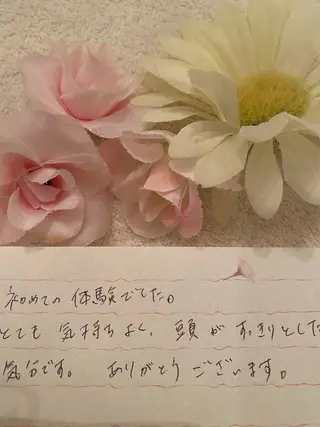 初めての 体験でした。
とても 気持ちよく、頭が すっきりとした
気分です。 ありがとう ございます。